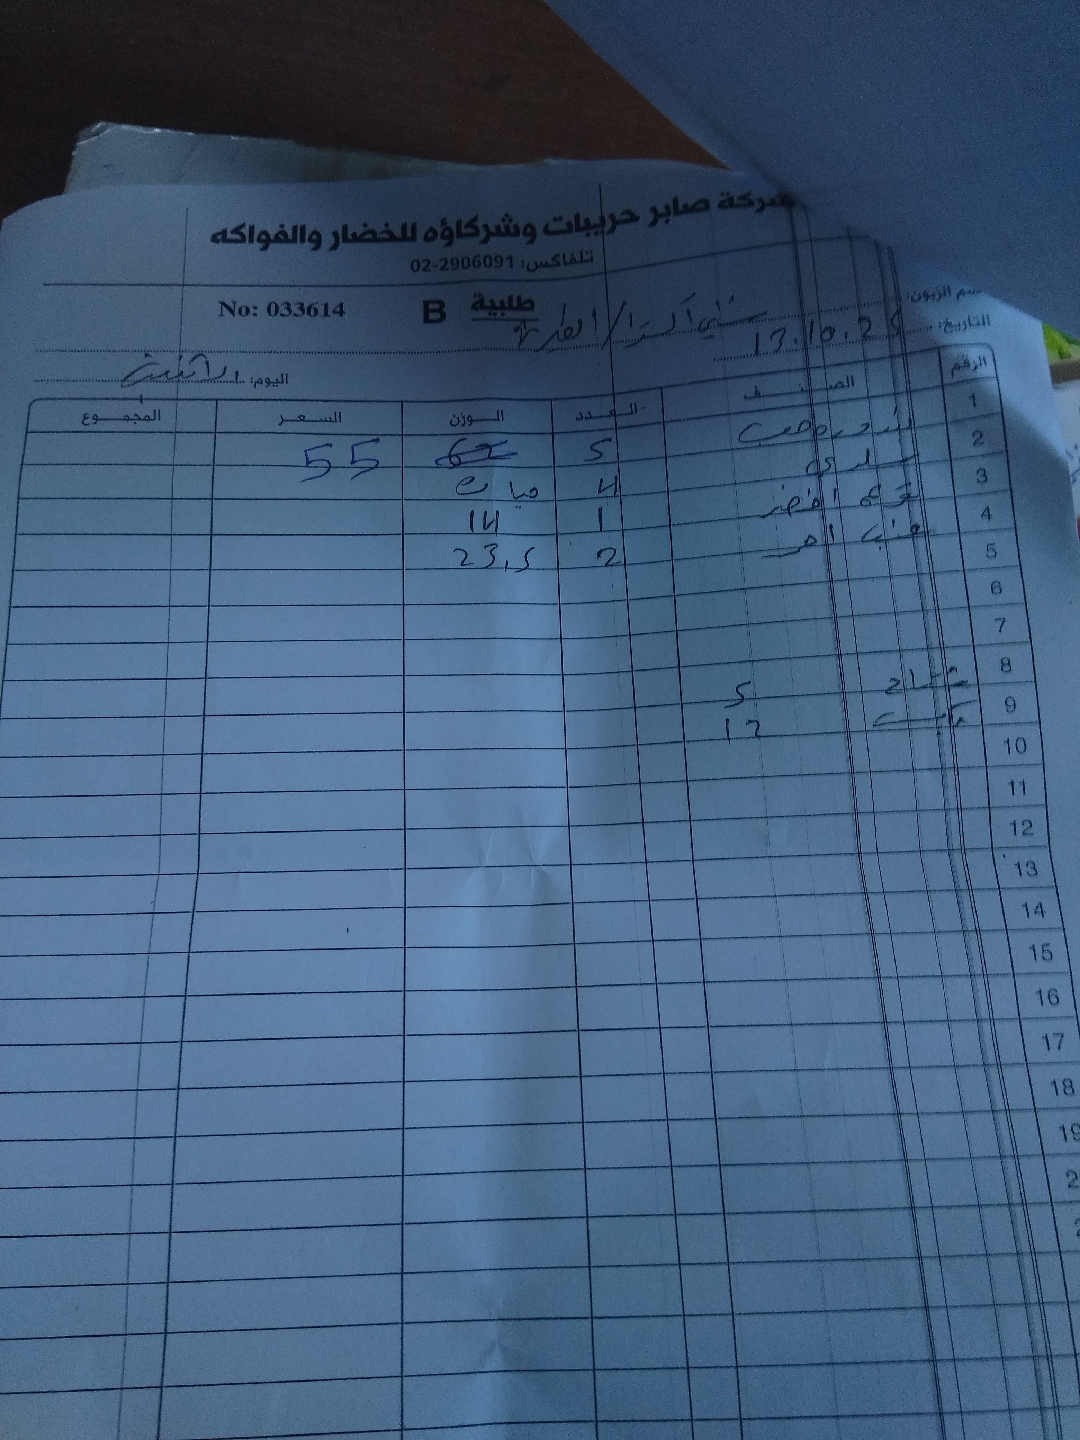 شركة صابر حريبات وشركاؤه للخضار والفواكه
تلفاكس: 02-2906091
No: 033614 B طلبية
سم الزبون:
التاريخ: 13.10.25
اليوم: الاثنين
الرقم الصنف العدد الوزن السعر المجموع
1 5 62 55
2 4 حبات
3 اخضر 1 14
4 عنب احمر 2 23,5
5
6
7
8 تفاح 5
9 12
10
11
12
13
14
15
16
17
18
19
2
2